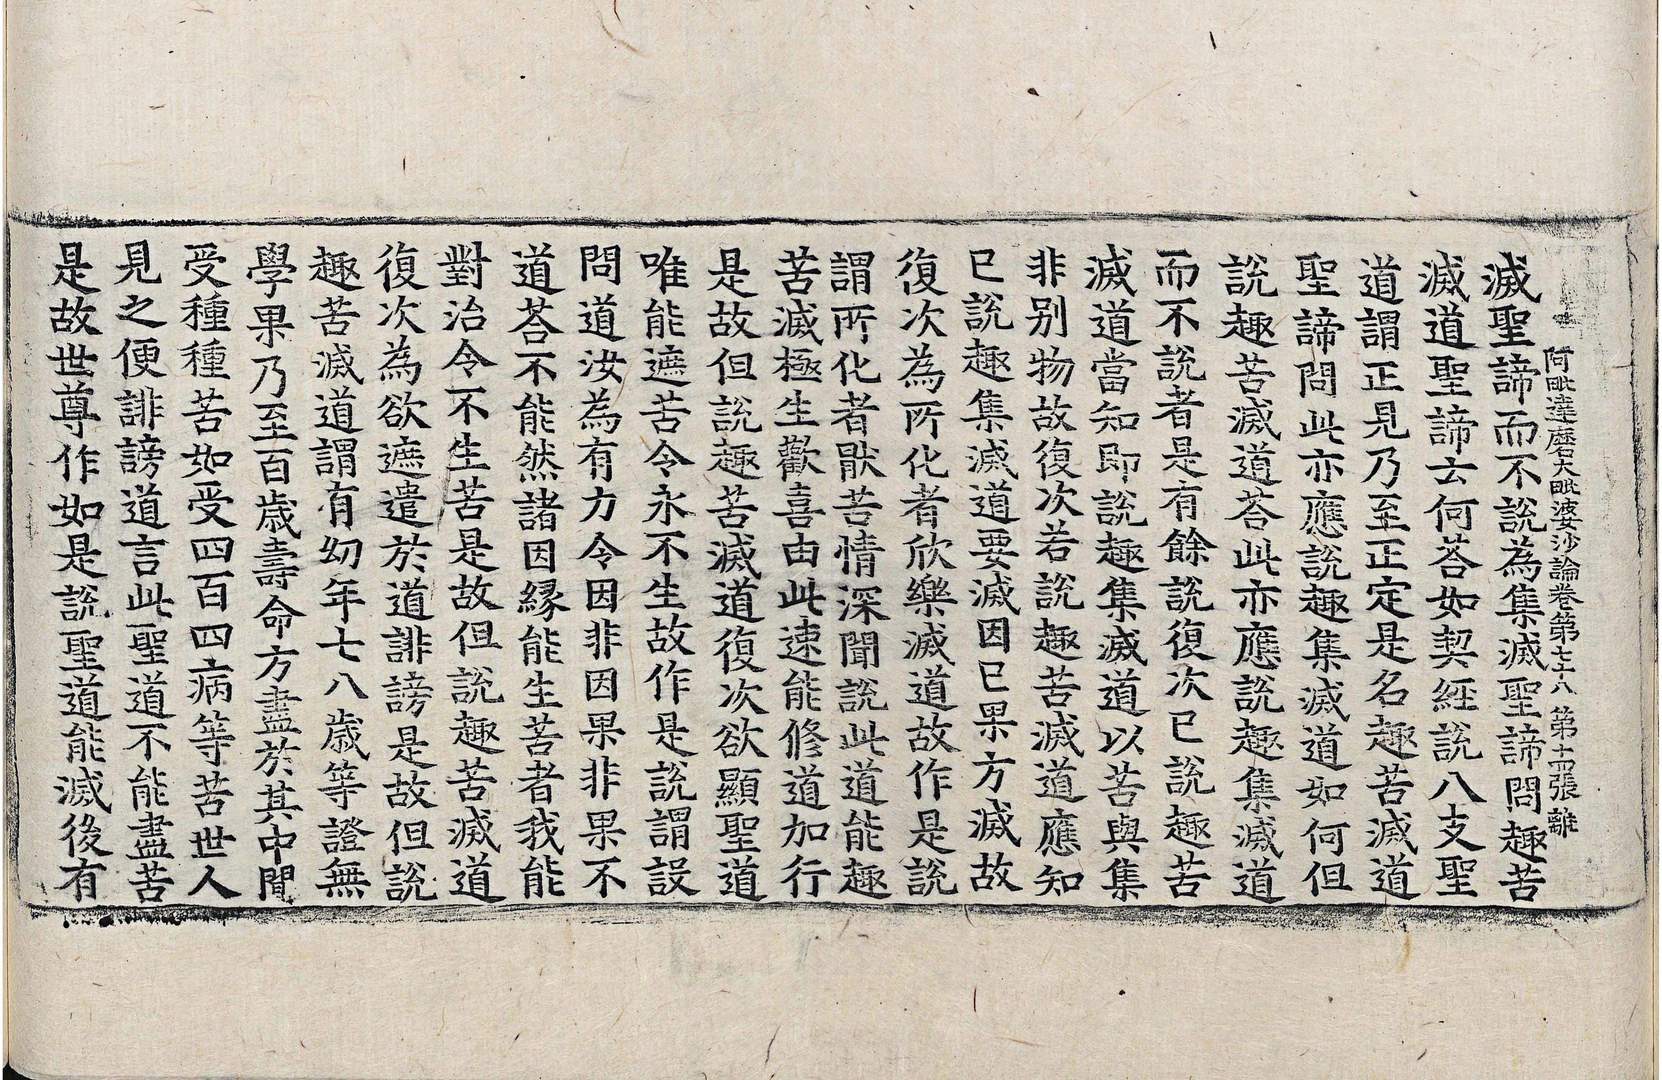 阿毗達磨大毗婆沙論卷第七十八 第十四張 離
滅聖諦而不說為集滅聖諦問趣苦
滅道聖諦云何荅如契經說八支聖
道謂正見乃至正定是名趣苦滅道
聖諦問此亦應說趣集滅道如何但
說趣苦滅道荅此亦應說趣集滅道
而不說者是有餘說復次已說趣苦
滅道當知即說趣集滅道以苦與集
非別物故復次若說趣苦滅道應知
已說趣集滅道要滅因已果方滅故
復次為所化者欣樂滅道故作是說
謂所化者猒苦情深聞說此道能趣
苦滅極生歡喜由此速能修道加行
是故但說趣苦滅道復次欲顯聖道
唯能遮苦令永不生故作是說謂設
問道汝為有力令因非因果非果不
道荅不能然諸因緣能生苦者我能
對治令不生苦是故但說趣苦滅道
復次為欲遮遣於道誹謗是故但說
趣苦滅道謂有幼年七八歲等證無
學果乃至百歲壽命方盡於其中間
受種種苦如受四百四病等苦世人
見之便誹謗道言此聖道不能盡苦
是故世尊作如是說聖道能滅後有